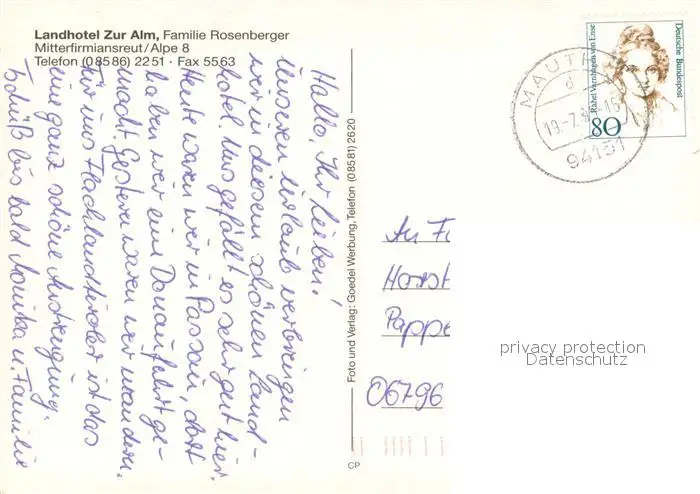 Landhotel Zur Alm, Familie Rosenberger
Mitterfirmiansreut/Alpe 8
Telefon (08586) 2251 · Fax 5563
Hallo, Ihr lieben!
Unseren Urlaub verbringen
wir in diesem schönen Land-
hotel. Uns gefällt es sehr gut hier.
Heute waren wir in Passau, dort
haben wir eine Donaufahrt ge-
macht. Gestern waren wir wandern.
Für uns Flachlandtiroler ist das
eine ganz schöne Anstrengung.
Tschüß bis bald Monika u. Familie
Foto und Verlag: Goedel Werbung, Telefon (08581) 2620
CP
Deutsche Bundespost
Rahel Varnhagen von Ense
80
MAUTH
d
19.-7.9
-16
94151
An F
Horst
Pappe
06796
privacy protection
Datenschutz